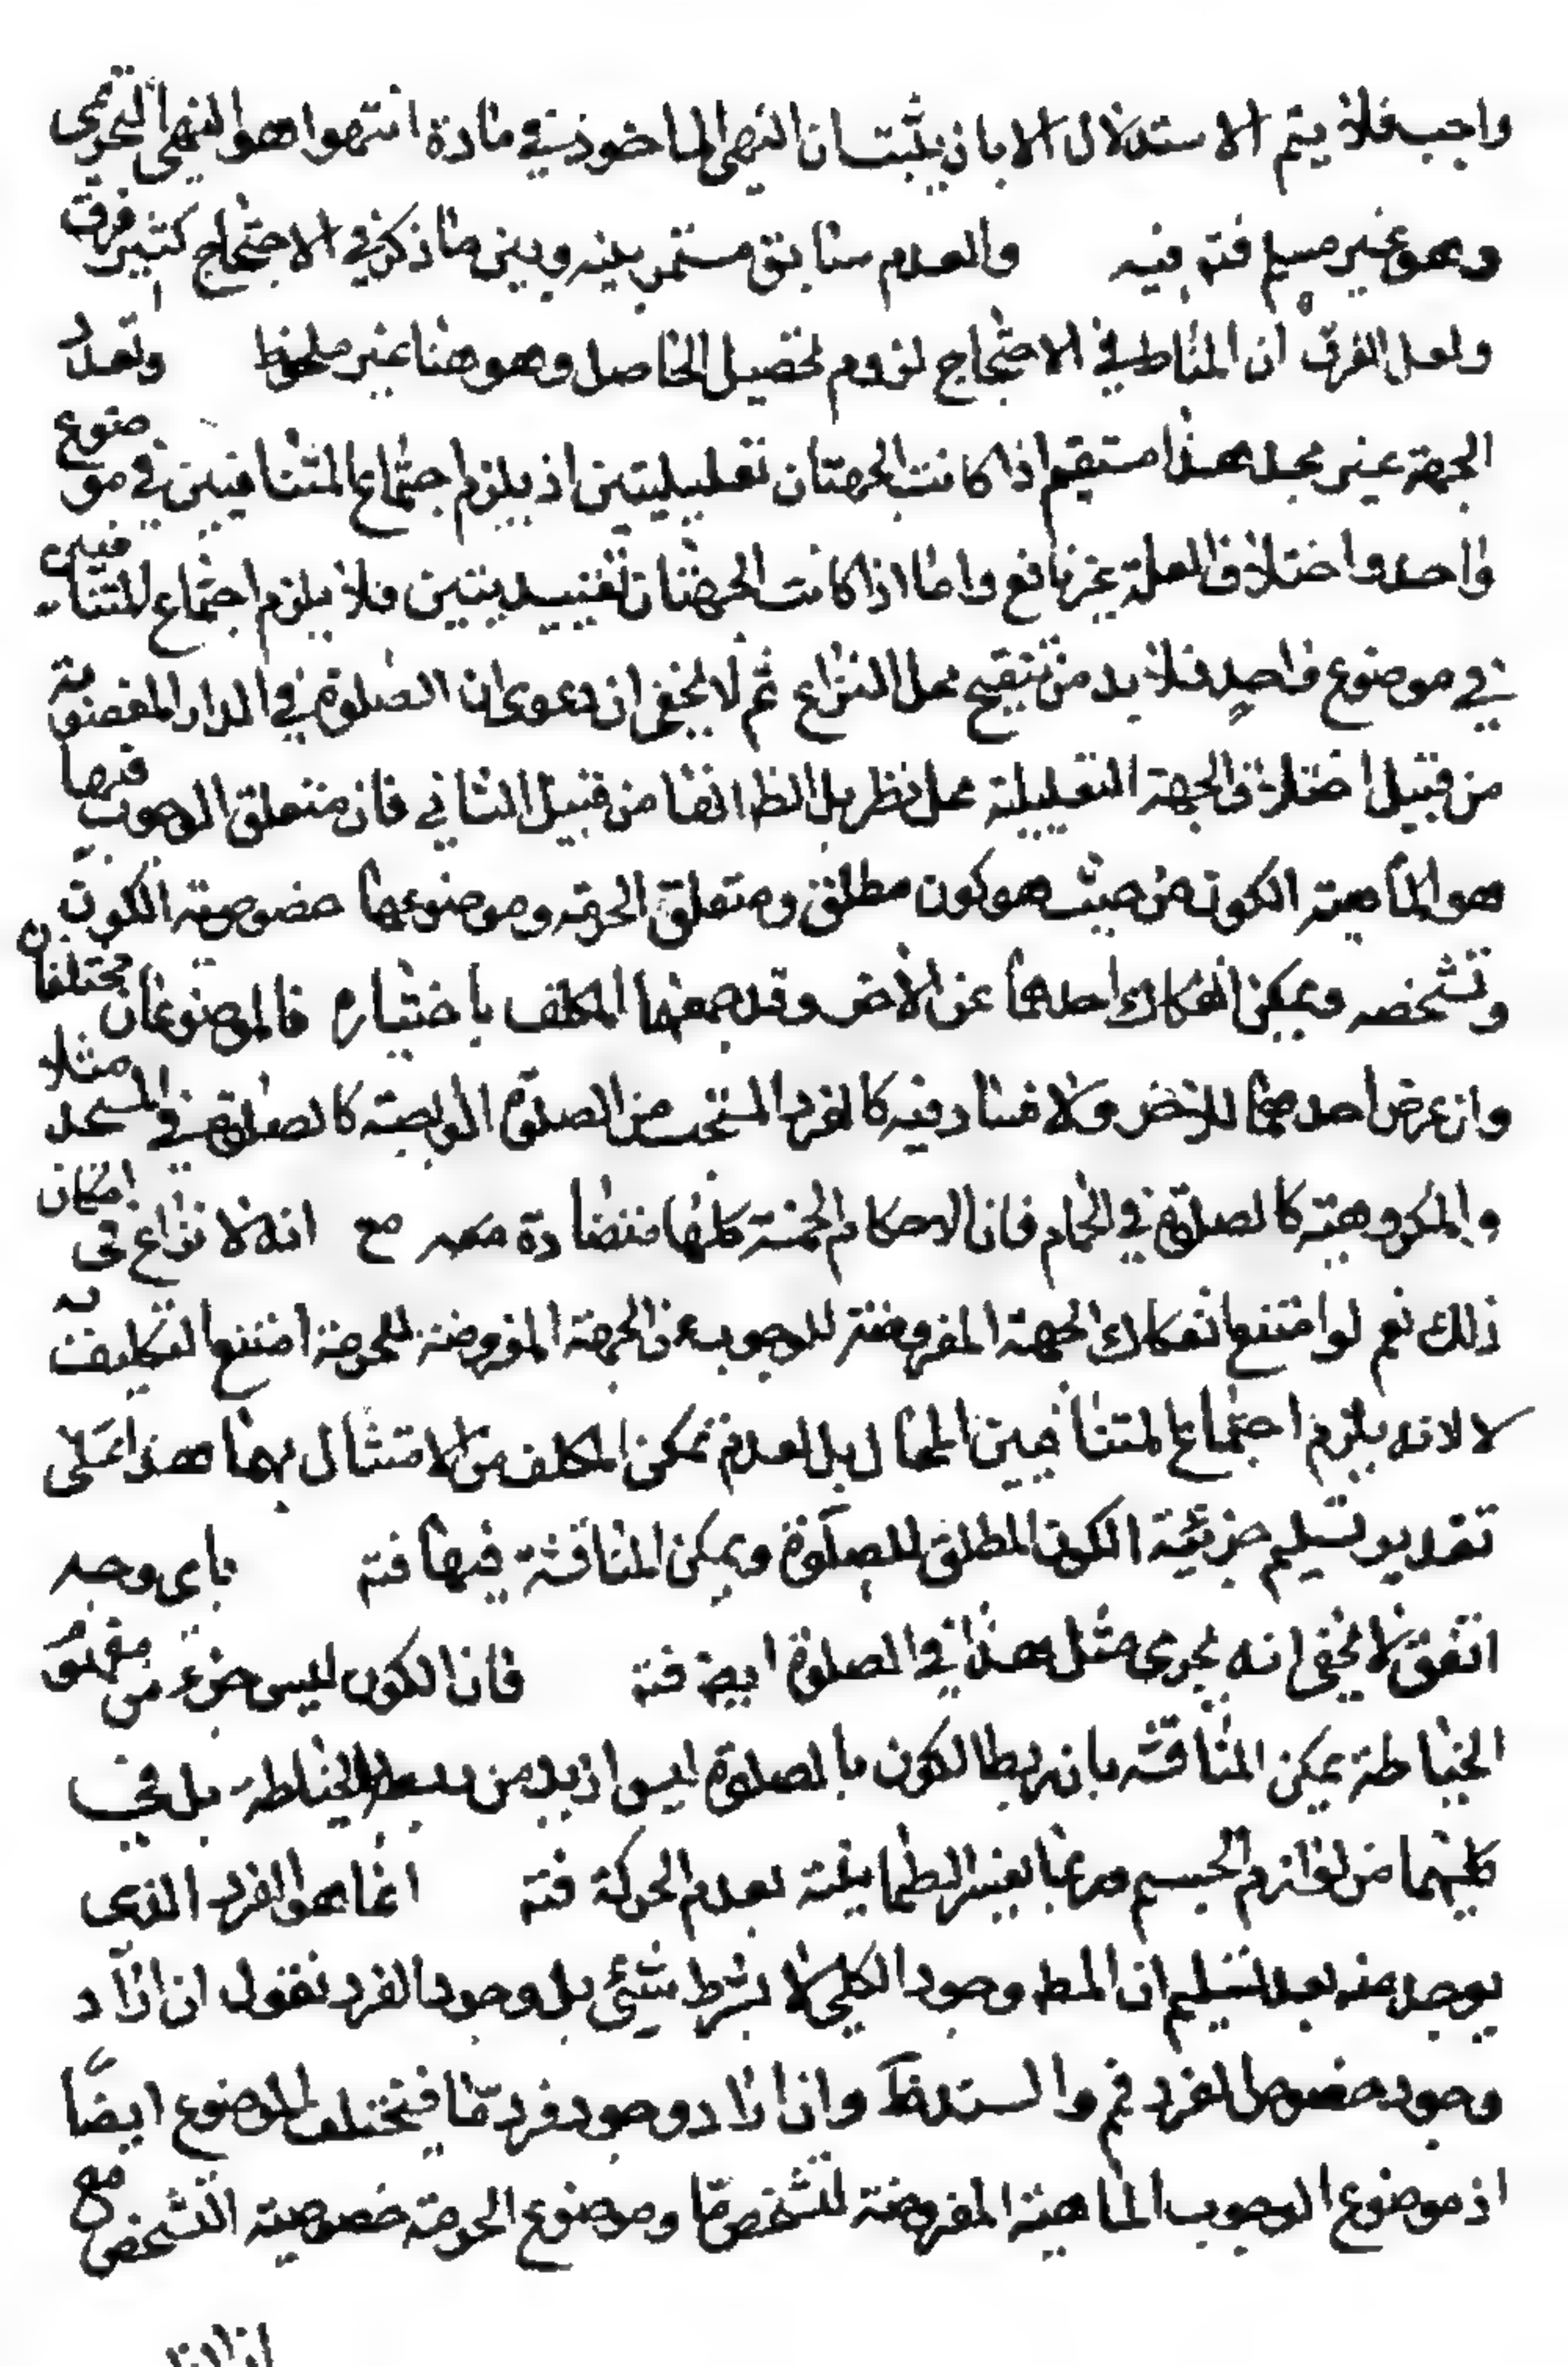 واجب فلا يتم الاستدلال الا بان يثبت ان النهي الماخوذ في مادة انتهوا هو النهي التحريمى
وهو غير مسلم فتم فيه والعدم سابق مستمر بينه وبين ما ذكر في الاحتجاج كثير فرق
ولعل الفرق ان المناط في الاحتجاج لزوم تحصيل الحاصل وهو هنا غير ملحوظ وتعدد
الجهة غير مجد هذا مستقيم اذا كانت الجهتان تعليليتين اذ يلزم اجتماع المتنافيين في موضوع
واحد واختلاف العلة غير نافع واما اذا كانت الجهتان تقييديتين فلا يلزم اجتماع المتنافيين
في موضوع واحد فلا بد من تنقيح محل النزاع ثم لا يخفى ان دعوى ان الصلوة في الدار المغصوبة
من قبيل اختلاف الجهة التعليلية محل نظر بل الظ انها من قبيل الثاني فان متعلق الوجوب فيها
هو الماهية الكون من حيث هو كون مطلق ومتعلق الحرمة وموضوعها خصوصية الكون
وتشخصه ويمكن انفكاك احدهما عن الاخر وقد جمعهما المكلف باختياره فالموضوعان مختلفان
وان عرض احدهما للاخر ولا فساد فيه كالفرد المستحب من الصلوة الواجبة كالصلوة في المسجد مثلا
والمكروهة كالصلوة في الحمام فان الاحكام الخمسة كلها متضادة معه مع انه لا نزاع في امكان
ذلك نعم لو امتنع انفكاك الجهة المفروضة للوجوب عن الجهة المفروضة للحرمة امتنع التكليف به
لا لانه يلزم اجتماع المتنافيين المحال بل لعدم تمكن المكلف من الامتثال بهما هذا على
تقدير تسليم جزئية الكون المطلق للصلوة ويمكن المناقشة فيها فتم باى وجه
اتفق لا يخفى انه يجرى مثل هذا في الصلوة ايضا فتم فان الكون ليس جزء من مفهوم
الخياطة يمكن المناقشة بان ربط الكون بالصلوة ليس ازيد من ربطه بالخياطة بل في
كليهما من لوازم الجسم وربما يفسر الطمانينة بعدم الحركة فتم انما هو الفرد الذى
يوجد منه بعد تسليم ان المط وجود الكلي لا بشرط شئ بل وجود الفرد نقول ان اراد
وجود خصوص الفرد فم والسند ظ وان اراد وجود فرد ما فيختلف الموضوع ايضا
اذ موضوع الوجوب الماهية المفروضة لتشخص ما وموضوع الحرمة خصوصية التشخص مع